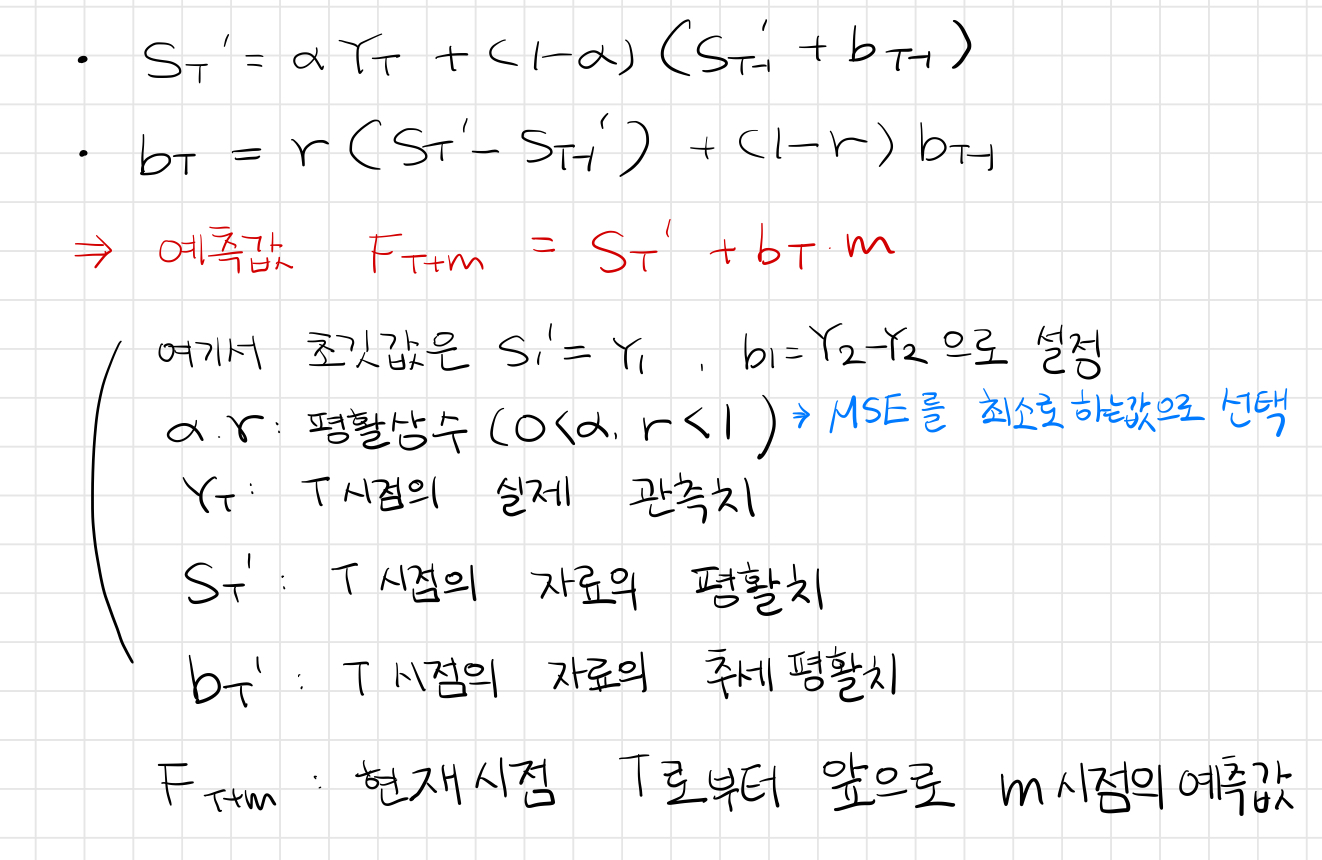 • S_T' = αY_T + (1-α)(S_T-1' + b_T-1)
• b_T = r(S_T' - S_T-1') + (1-r)b_T-1
⇒ 예측값 F_T+m = S_T' + b_T·m
여기서 초깃값은 S_1' = Y_1, b_1 = Y_2-Y_2 으로 설정
α, r : 평활상수 (0<α, r<1) → MSE를 최소로 하는값으로 선택
Y_T : T시점의 실제 관측치
S_T' : T시점의 자료의 평활치
b_T' : T시점의 자료의 추세평활치
F_T+m : 현재시점 T로부터 앞으로 m시점의 예측값